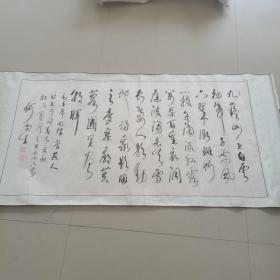 九嶷山上白雲
飛帝子乘風
下翠微斑竹
一枝千滴淚紅霞
萬朵百重衣洞
庭波湧連天雪
長島人歌動
地詩我欲因
之夢寥廓芙
蓉國里盡
朝暉
毛主席七律答友人